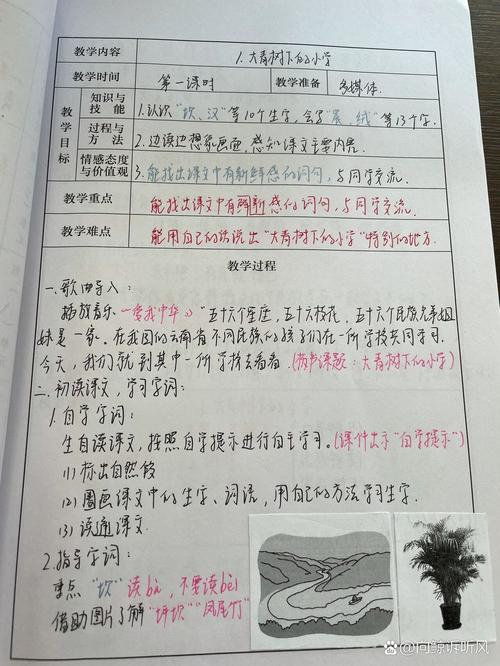 教学内容 1.大青树下的小学
教学时间 第一课时 教学准备 多媒体.
教学目标
知识与技能 1.认识"坝、汉"等10个生字,会写"晨、绒"等13个字.
过程与方法 2.边读边想象画面,感知课文主要内容.
情感态度与价值观 3.能找出课文中有新鲜感的词句,与同学交流.
教学重点 能找出课文中有新鲜感的词句,与同学交流.
教学难点 能用自己的话说出"大青树下的小学"特别的地方.
教学过程
一、歌曲导入:
播放音乐《爱我中华》"五十六个星座,五十六枝花,五十六个民族兄弟姐
妹是一家.在我国的云南省不同民族的孩子们在一所学校共同学习.
今天,我们就到其中一所学校去看看.(板书课题:大青树下的小学)
二、初读课文,学习字词:
1.自学字词:
生自读课文,按照自学提示进行自主学习.(课件出示"自学提示")
(1)标出自然段
(2)圈画课文中的生字、词语,用自己的方法学习生字.
(3)读通课文.
2.指导字词:
重点"坝"读bà,不要读bèi
借助图片了解"坪坝""凤尾竹"
@向鲸诉听风